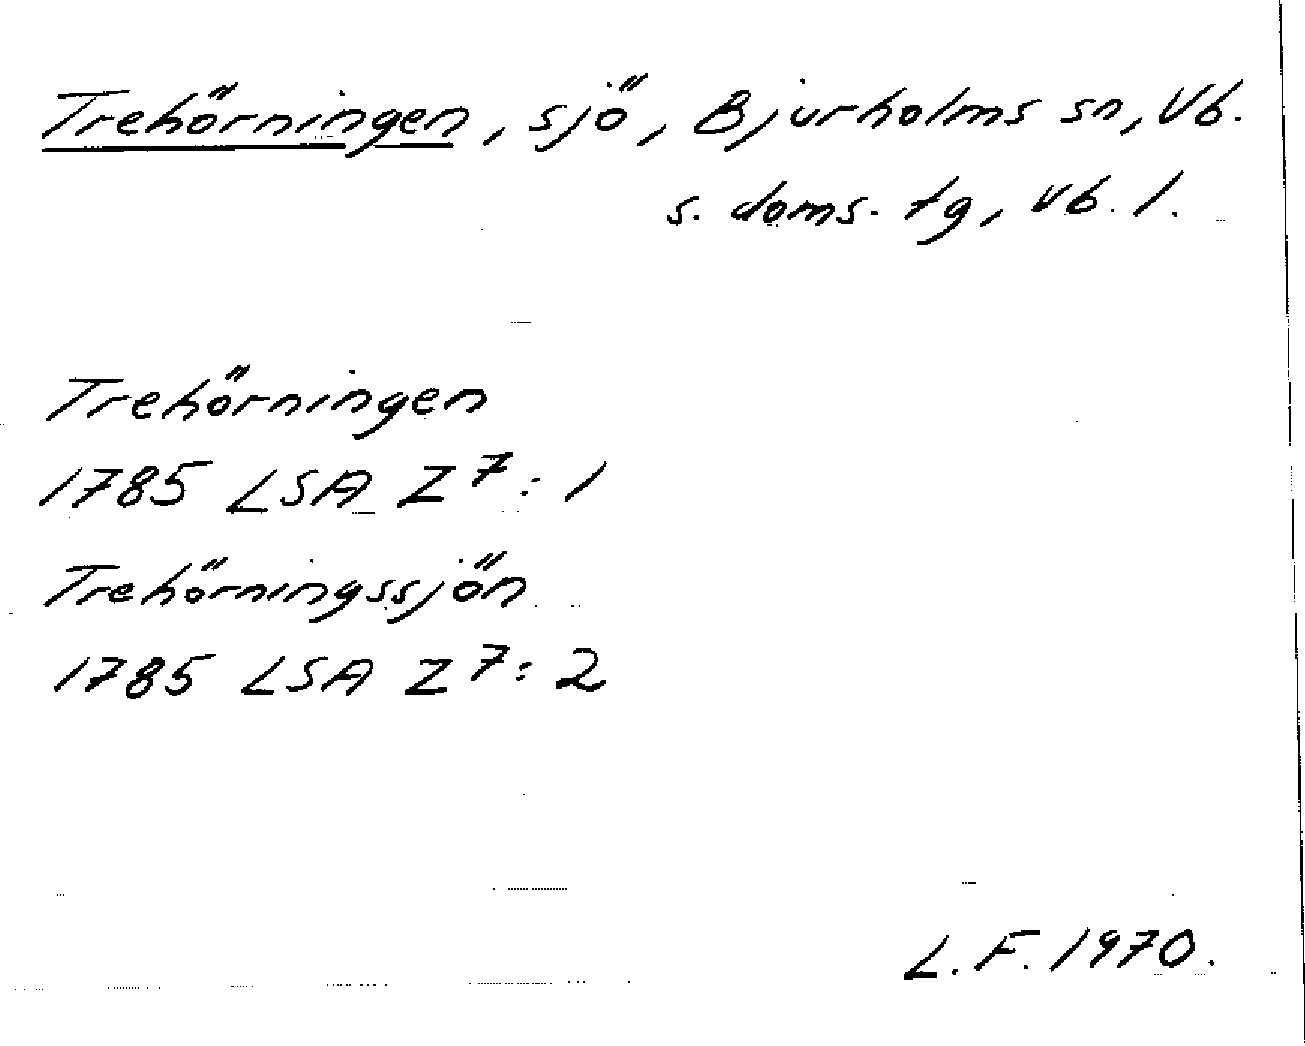 Trehörningen, sjö, Bjurholms sn, Vb.
s. doms. tg, Vb. l.
Trehörningen
1785 LSA Z 7:1
Trehörningssjön
1785 LSA Z 7:2
L.F. 1970.